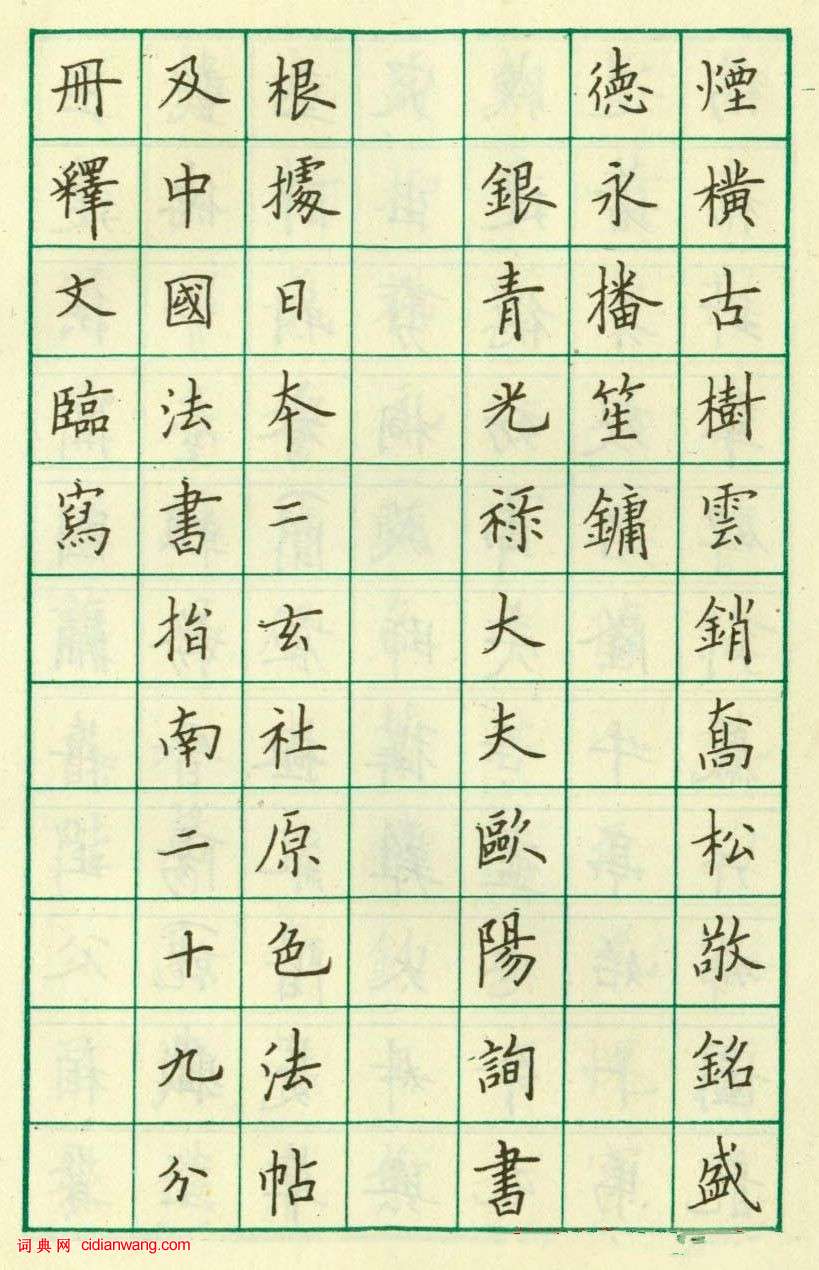 煙橫古樹雲銷喬松敬銘盛
德永播笙鏞
銀青光祿大夫歐陽詢書
根據日本二玄社原色法帖
及中國法書指南二十九分
冊釋文臨寫
词典网 cidianwang.com